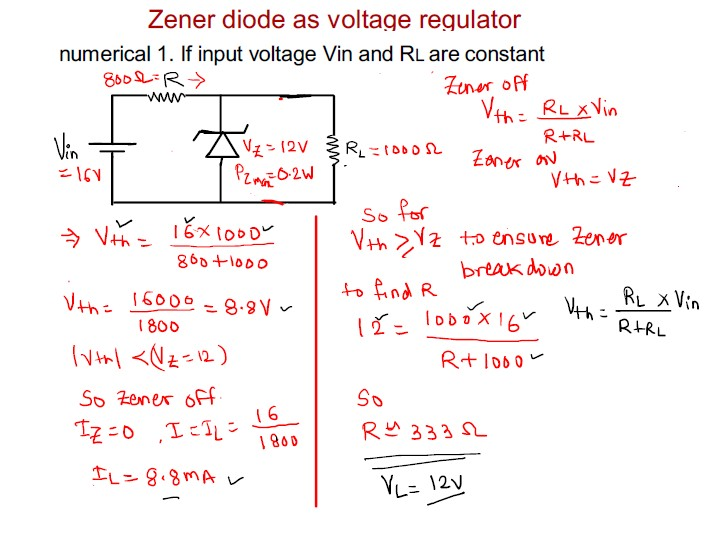 Zener diode as voltage regulator
numerical 1. If input voltage Vin and RL are constant
800Ω = R →
Vin
= 16V
VZ = 12V
PZmax = 0.2W
RL = 1000Ω
Zener off
Vth = RL x Vin / R+RL
Zener on
Vth = VZ
⇒ Vth = 16 x 1000 / 800+1000
Vth = 16000 / 1800 = 8.8V
|Vth| < (VZ = 12)
So Zener off.
IZ = 0 , I = IL = 16 / 1800
IL = 8.8mA
So for
Vth ≥ VZ to ensure Zener
breakdown
to find R
12 = 1000 x 16 / R + 1000
Vth = RL x Vin / R+RL
So
R ≃ 333 Ω
VL = 12V